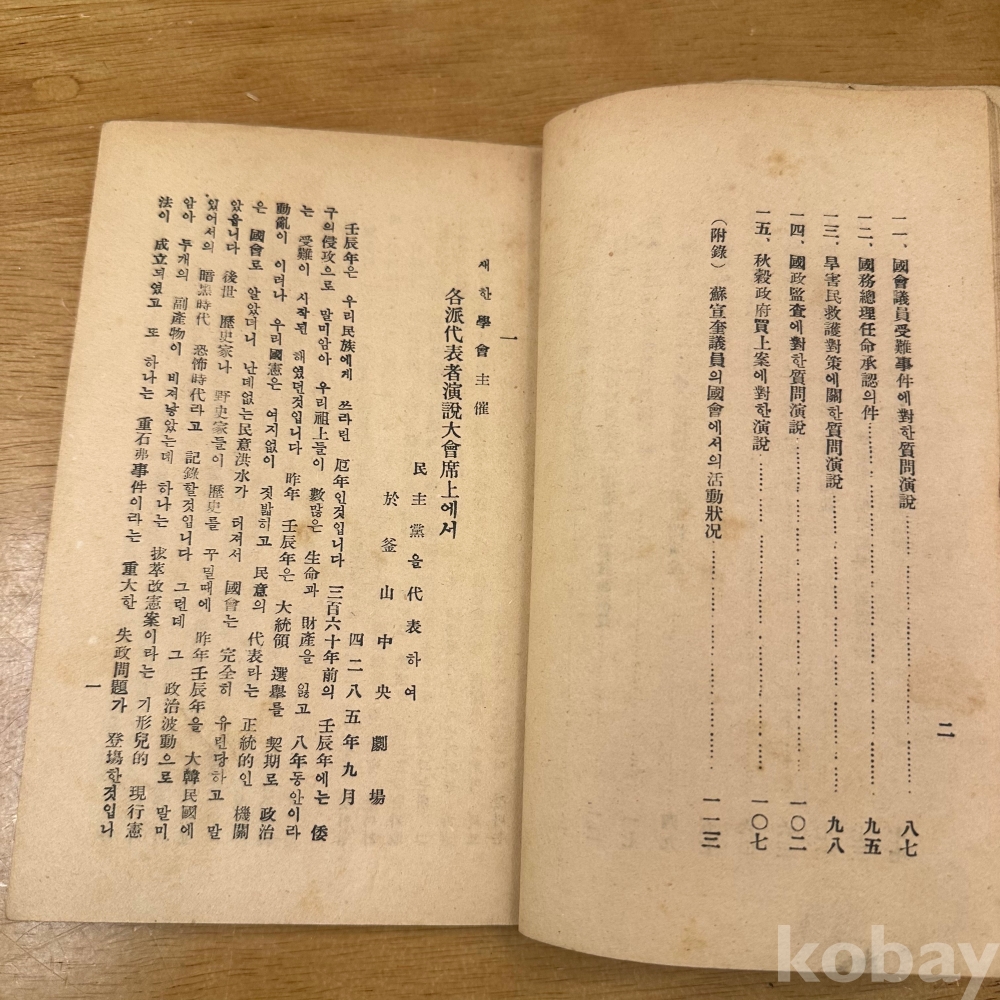 二
一一、國會議員受難事件에對한質問演說……八七
一二、國務總理任命承認의件……九五
一三、旱害民救護對策에關한質問演說……九八
一四、國政監査에對한質問演說……一〇二
一五、秋穀政府買上案에對한演說……一〇七
(附錄) 蘇宣奎議員의國會에서의活動狀况……一一三
一
새한學會主催
各派代表者演說大會席上에서
民主黨을代表하여
於釜山中央劇場
四二八五年九月
壬辰年은 우리民族에게 쓰라린 厄年인것입니다 三百六十年前의 壬辰年에는 倭
구의 侵攻으로 말미암아 우리祖上들이 數많은 生命과 財產을 잃고 八年동안이라
는 受難이 시작된 해였던것입니다 昨年 壬辰年은 大統領 選擧를 契期로 政治
動亂이 이러나 우리國憲은 여지없이 짓밟히고 民意의 代表라는 正統的인 機關
은 國會로 알았더니 난데없는民意洪水가 터져서 國會는 完全히 유린당하고 말
았읍니다 後世 歷史家나 野史家들이 歷史를 꾸밀때에 昨年壬辰年을 大韓民國에
있어서의 暗黑時代 恐怖時代라고 記錄할것입니다 그런데 그 政治波動으로 말미
암아 두개의 副產物이 비저낳았는데 하나는 拔萃改憲案이라는 기形兒的 現行憲
法이 成立되였고 또 하나는 重石弗事件이라는 重大한 失政問題가 登場한것입니
一
kobay